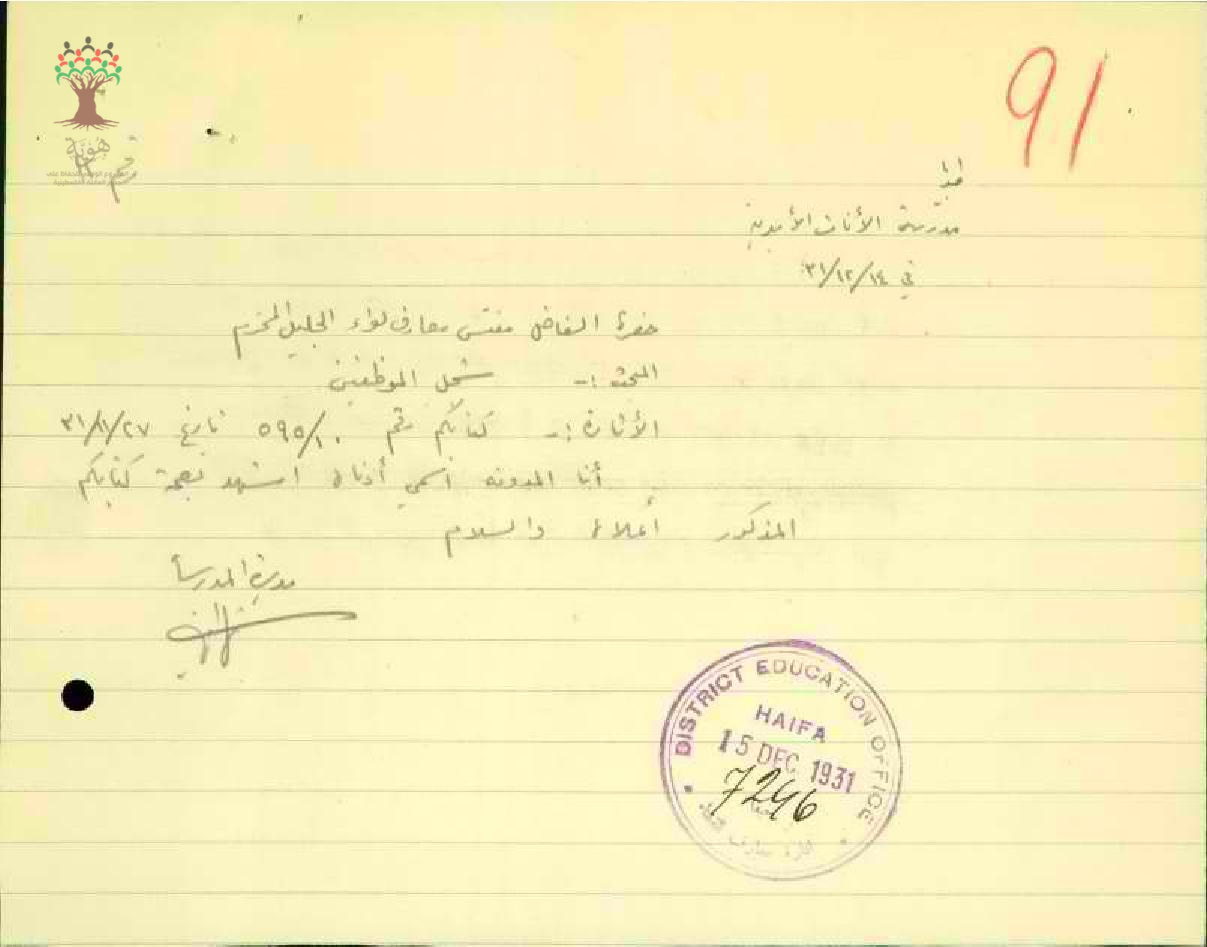 91
هوية
رقم
حيفا
مدرسة الأناث الأميرية
في ٣١/١٢/١٤
حضرة الفاضل مفتش معارف لواء الجليل المحترم
المبحث :- سجل الموظفين
الأشارة :- كتابكم رقم ٥٩٥/١٠ تاريخ ٣١/١١/٢٧
أنا المدونه اسمي أدناه اشهد بصحة كتابكم
المذكور أعلاه والسلام
مديرة المدرسة
DISTRICT EDUCATION OFFICE
HAIFA
15 DEC 1931
7246
ادارة معارف